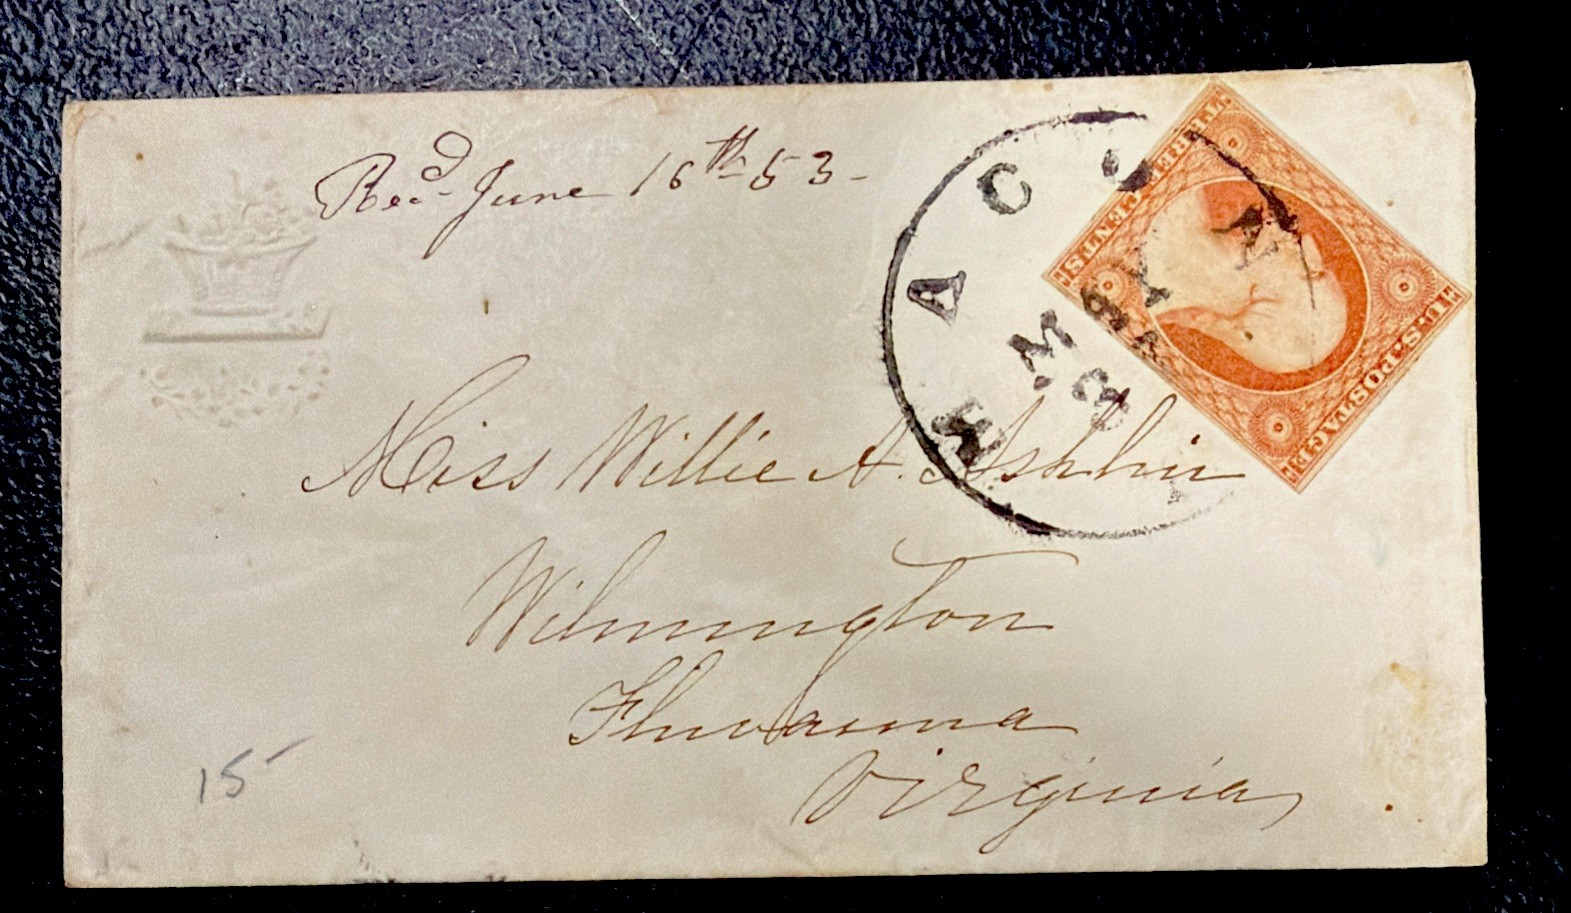 Recd June 16th 53
THREE CENTS
U.S. POSTAGE
MACON
MAY
3
Miss Willie A. Ashlin
Wilmington
Fluvanna
Virginia
15